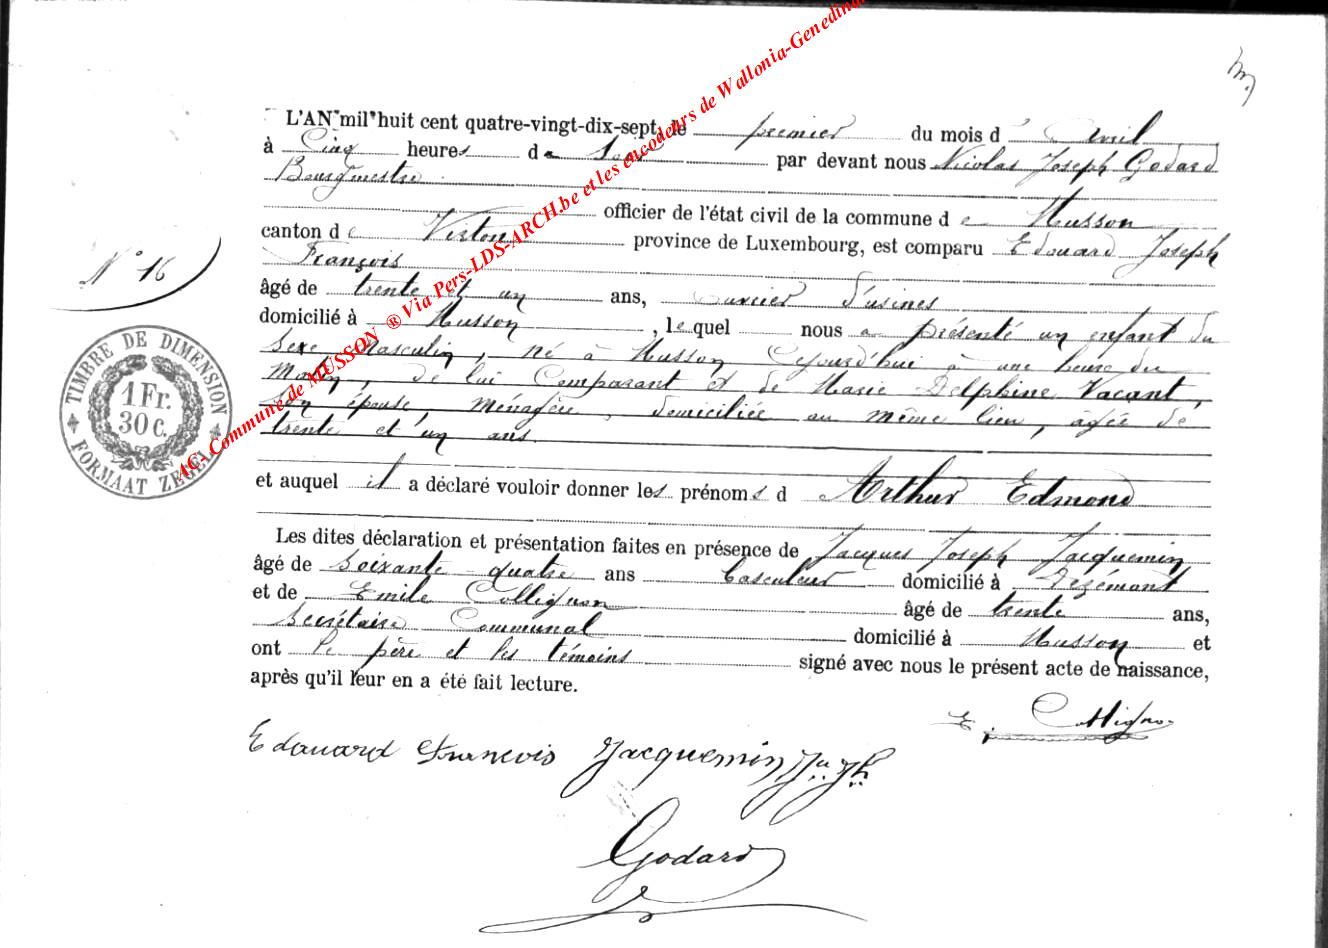 L'AN mil huit cent quatre-vingt-dix-sept, le premier du mois d' Avril
à Cinq heures de Soir par devant nous Nicolas Joseph Godard
Bourgmestre
officier de l'état civil de la commune de Musson
canton de Virton province de Luxembourg, est comparu Edouard Joseph
François
âgé de trente et un ans, ouvrier d'usines
domicilié à Musson, lequel nous a présenté un enfant du
Sexe Masculin, né à Musson Cejourd'hui à une heure du
Matin, de lui Comparant et de Marie Delphine Vacant,
son épouse, ménagère, domiciliée au même lieu, âgée de
trente et un ans.
et auquel il a déclaré vouloir donner les prénoms d Arthur Edmond
Les dites déclaration et présentation faites en présence de Jacques Joseph Jacquemin
âgé de Soixante-quatre ans basculeur domicilié à
et de Emile Collignon âgé de trente ans,
Secrétaire Communal domicilié à Musson et
ont le père et les témoins signé avec nous le présent acte de naissance,
après qu'il leur en a été fait lecture.
E. Collignon
Edouard François Jacquemin Jq. Jh.
Godard
N° 16
TIMBRE DE DIMENSION
1 Fr.
30 C.
FORMAAT ZEGEL
AC- Commune de MUSSON ® Via Pers-LDS-ARCH.be et les encodeurs de Wallonia-Genedina